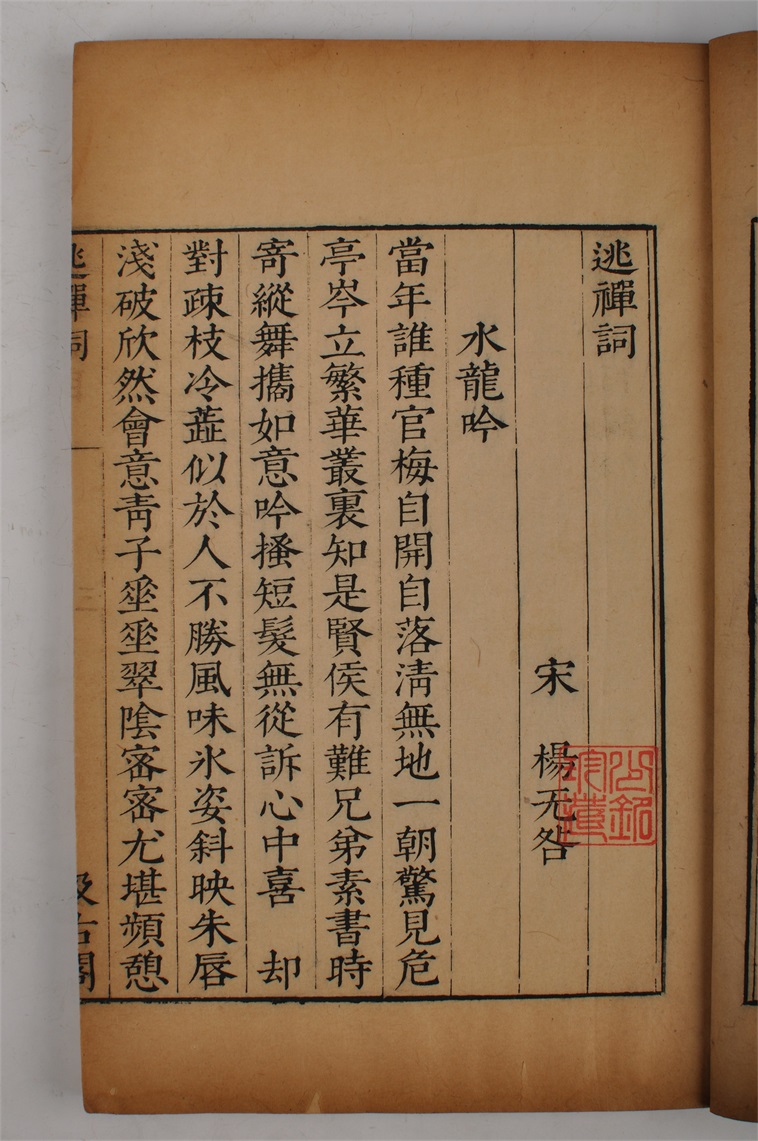 逃禪詞
宋 楊无咎
水龍吟
當年誰種官梅自開自落淸無地一朝驚見危
亭岑立繁華叢裏知是賢侯有難兄弟素書時
寄縱舞攜如意吟搔短髮無從訴心中喜 却
對疎枝冷蘂似於人不勝風味氷姿斜映朱唇
淺破欣然會意靑子垂垂翠陰密密尤堪頻憩
逃禪詞
汲古閣